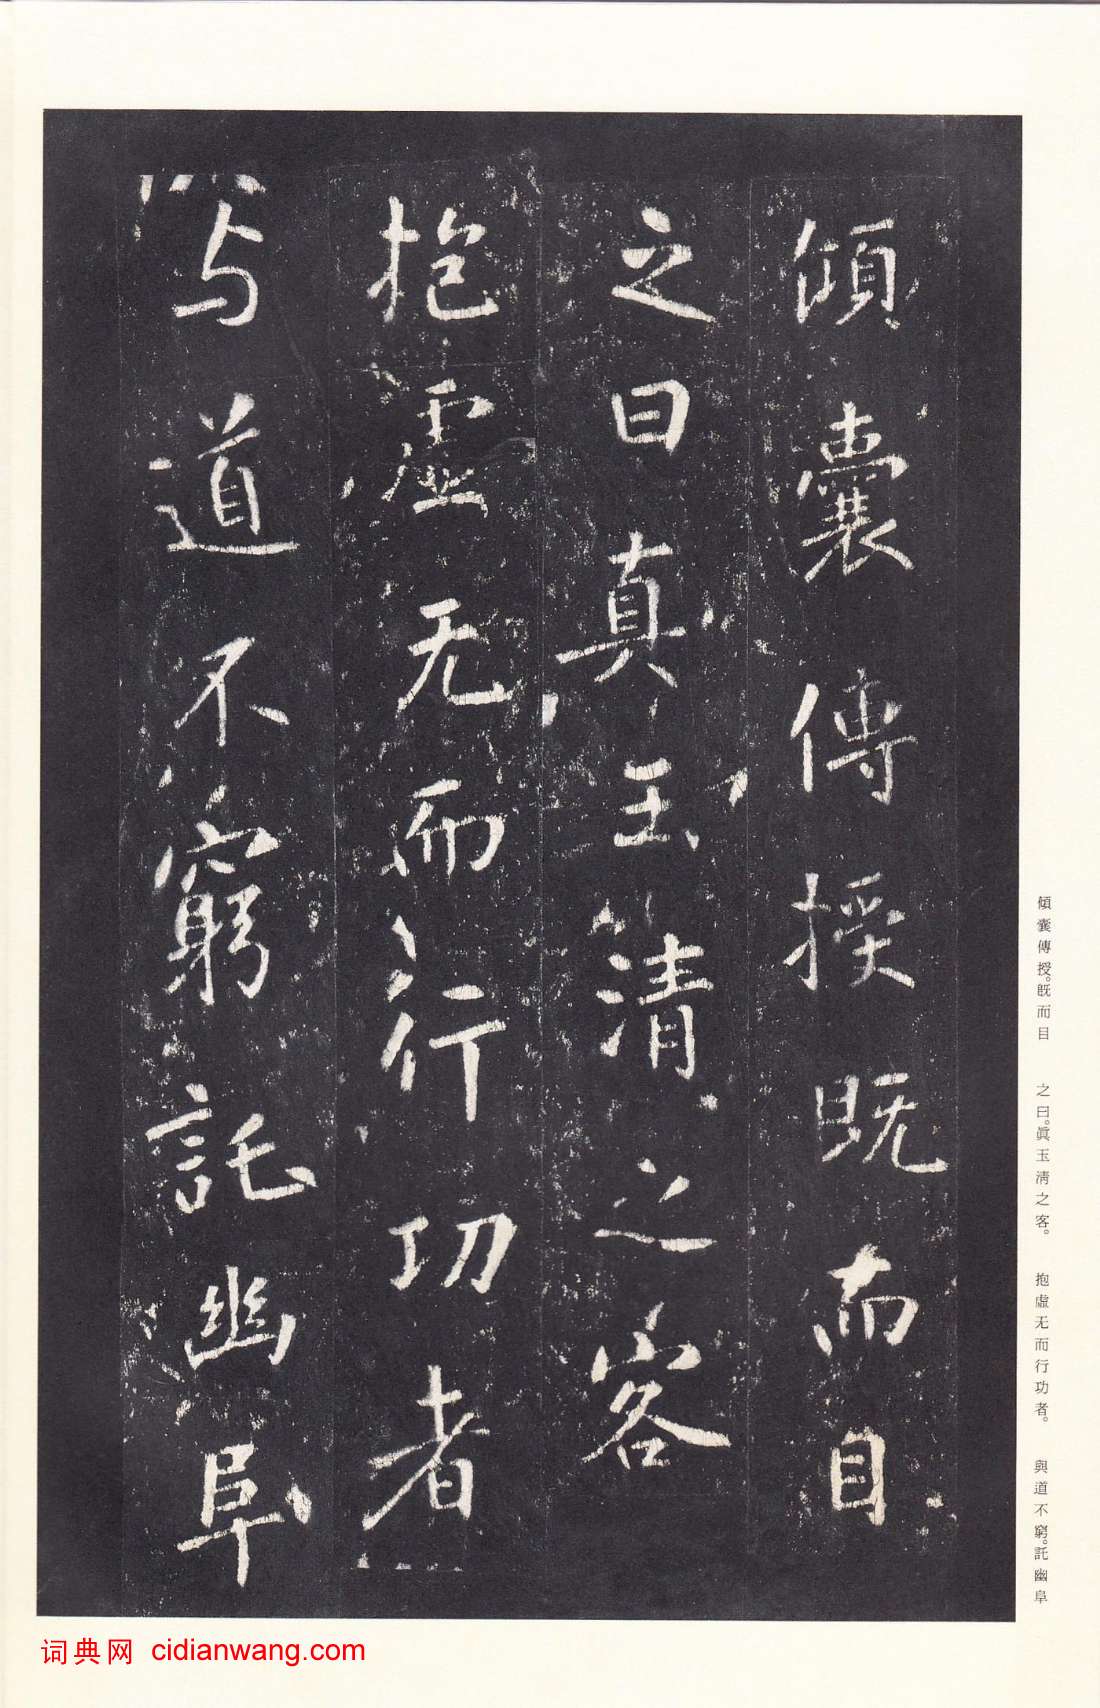 傾囊傳授既而目
之曰真玉清之客
抱虛无而行功者
与道不窮託幽阜
傾囊傳授。旣而目　之曰。眞玉淸之客。　抱虛无而行功者。　與道不窮。託幽阜
词典网 cidianwang.com